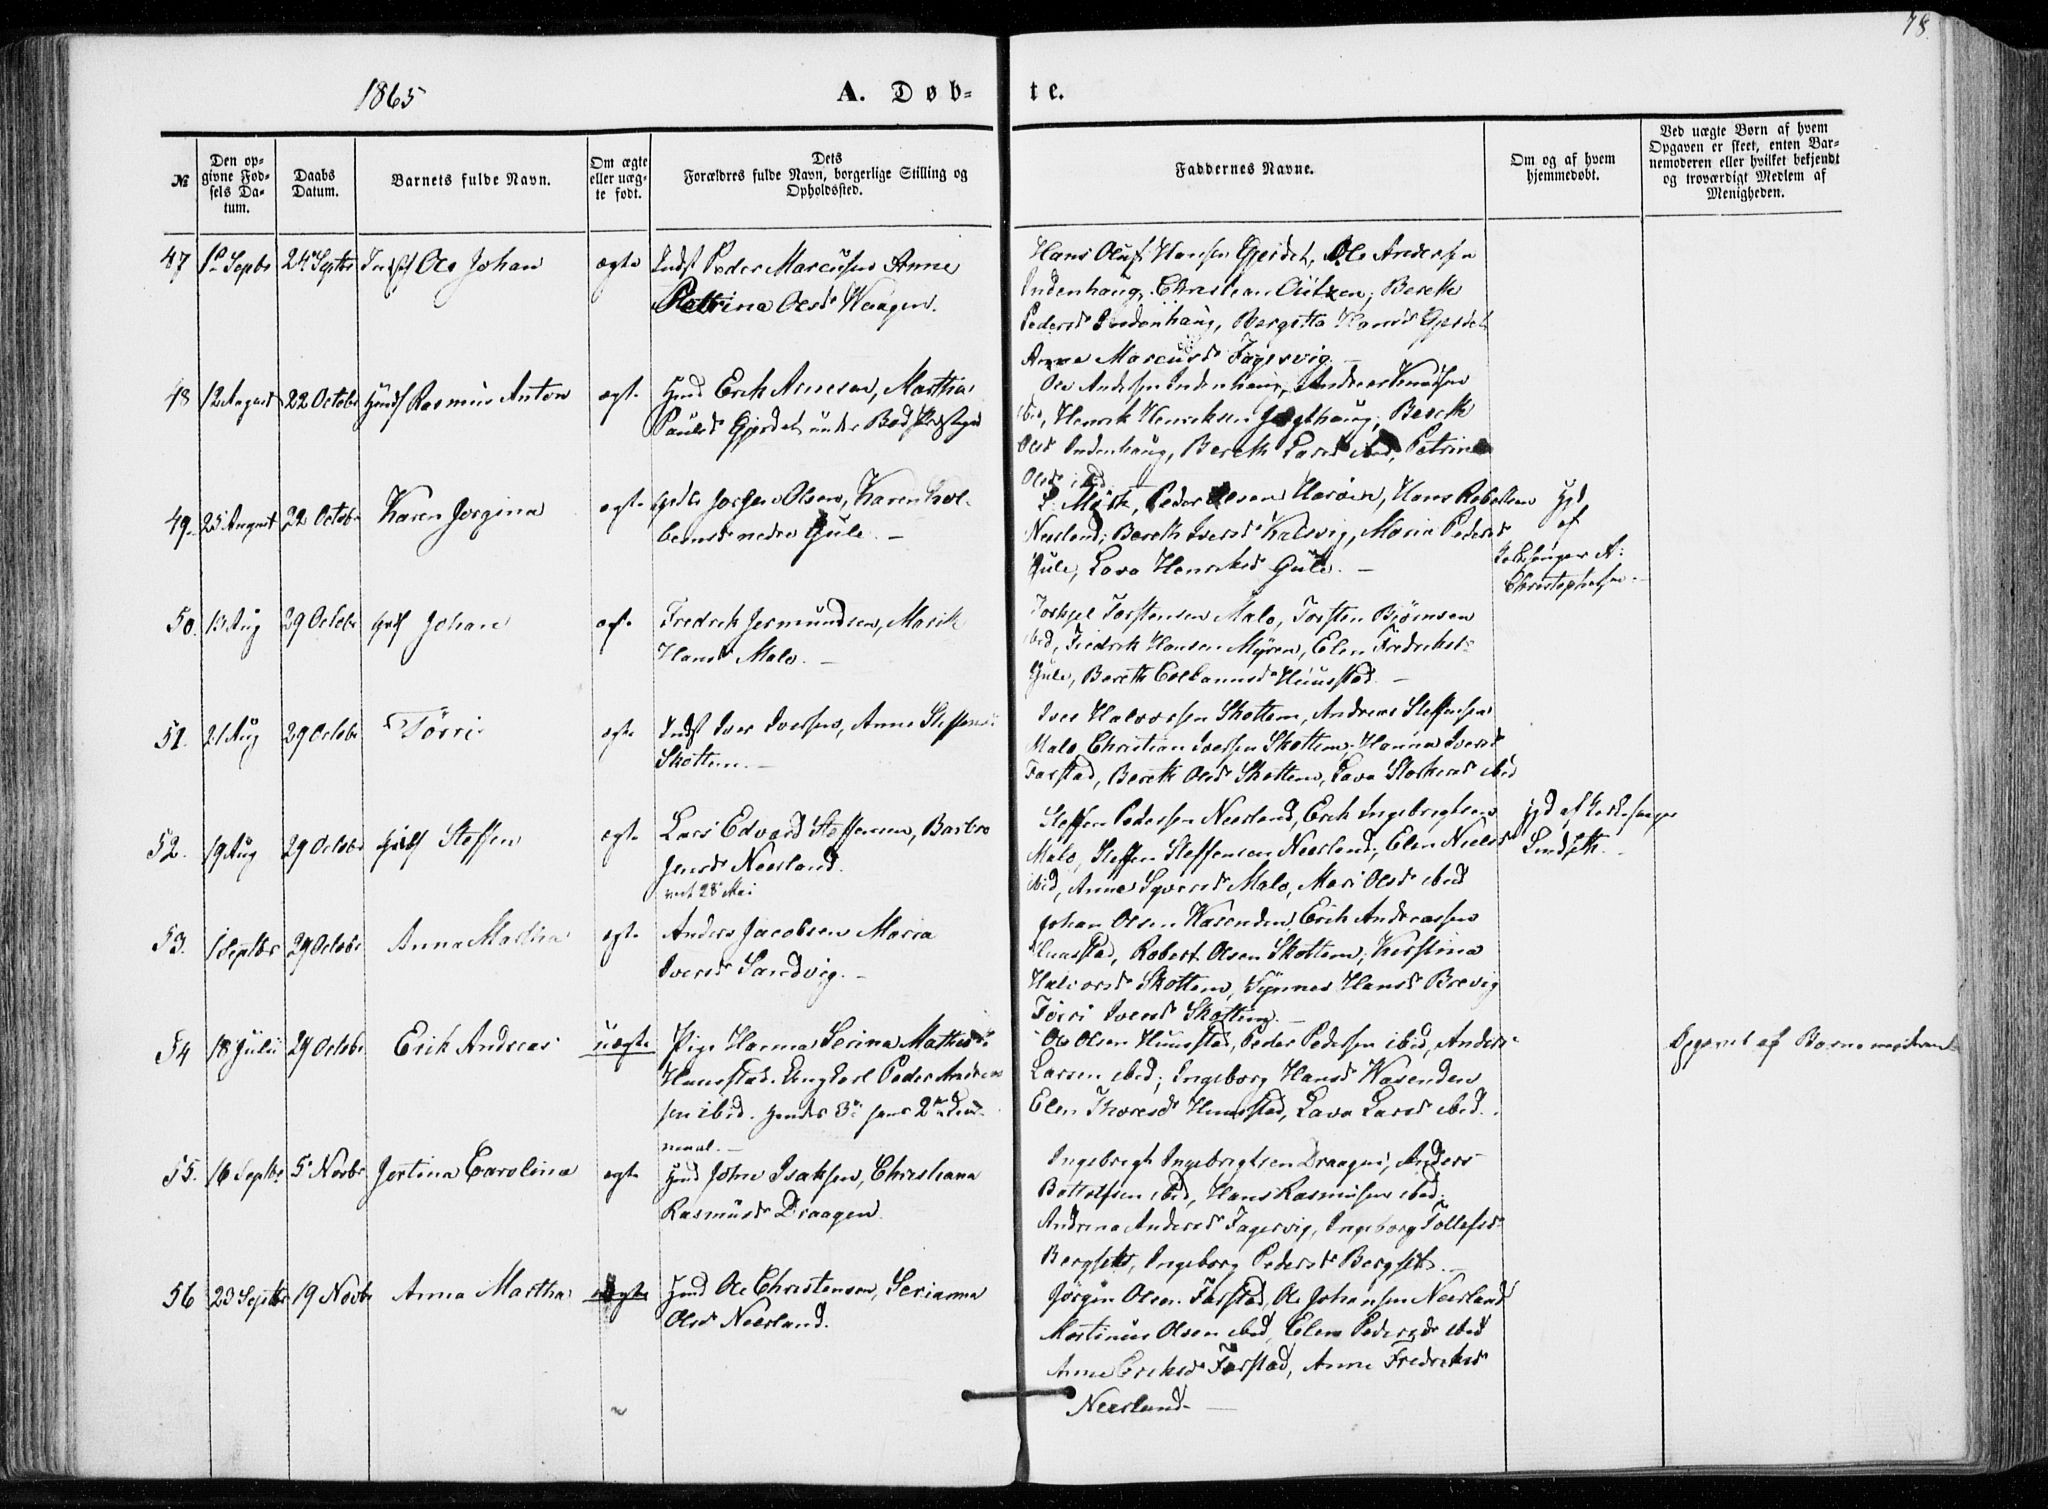 78.
1865
A. Døb- te.
№
Den op-
givne Fød-
sels Da-
tum.
Daabs
Datum.
Barnets fulde Navn.
Om ægte
eller uæg-
te født.
Dets
Forældres fulde Navn, borgerlige Stilling og
Opholdssted.
Faddernes Navne.
Om og af hvem
hjemmedøbt.
Ved uægte Børn af hvem
Opgaven er skeet, enten Bar-
nemoderen eller hvilket bekjendt
og troværdigt Medlem af
Menigheden.
47 1ste Septbr 24 Septbr Ole Johan ægte Indst Peder Marcusen Anne
Petrina Olsd Waagen.
Hans Oluf Hansen Gjerdet, Ole Andersen
Indenhaug, Christian; Bereth
Pedersd Indenhaug, Bergitta Hansd Gjerdet
Anne Marcusd Fagervig. —
48 12 August 22 Octobr Rasmus Anton ægte Huusmd Erik Arnesen, Martha
Paulsd Gjerdet under Bod Præstegd
Ole Andersen Indenhaug, Andreas Knudsen
ibid, Henrik Henriksen; Bereth
Olsd Indenhaug, Bereth Larsd ibid, Petrine
Olsd ibid
49. 25 August 22 Octobr Karen Jorgina ægte Jørgen Olsen, Karen Kol-
beinsd nedre Gule. —
L. Mørk, Peder Olsen Harøen, Hans Robertsen
Neerland; Bereth Iversd Kalsvig, Marie Pedersd
Gule, Lava Henriksd Gule. —
Hjd
af
Kirkesanger A.
Christophersen.
50. 13 Aug 29 Octobr Johan ægte Fredrik Jermundsen, Marit
Hansd Malo. —
Torkjel Torstensen Malo, Torsten Bjørnsen
ibid, Fredrik Hansen Myren, Elen Fredriksd
Gule, Bereth Colbannsd Huustad. —
51. 21 Aug 29 Octobr Törri ægte Indst Iver Iversen, Anne Steffensd
Skottem. —
Iver Halvorsen Skottem, Andreas Steffensen
Malo, Christian Iversen Skottem; Hanna Iversd
Farstad, Bereth Olsd Skottem, Lava ibid
52. 19 Aug 29 Octobr Steffen ægte Lars Edvard Steffensen, Barbro
Jensd Neerland.
28 Mai
Steffen Pedersen Neerland, Erik Ingebrigtsen
Malo, Steffen Steffensen Neerland; Elen Nielsd
ibid, Anne Syversd Malo, Mari Olsd ibid
Hjd af Kirkesanger
Lindseth.
53. 1 Septbr 29 Octobr Anna Martha ægte Anders Jacobsen Maria
Iversd Sandvig. —
Johan Olsen Wasenden, Erik Andreassen
Huustad, Robert Olsen Skottem; Kirstina
Halvorsd Skottem, Synnev Hansd Brevig
Törri Iversd Skottem. —
54 18 Julii 29 Octobr Erik Andreas uægte Pige Hanna Serina Mathisd
Huustad. Ungkarl Peder Andrea
sen ibid. hendes 3die hans 2den Leier-
maal. —
Ole Olsen Huustad, Peder Pedersen ibid, Anders
Larsen ibid; Ingeborg Hansd Wasenden
Elen Thoresd Huustad, Lava Larsd ibid.
Opgivet af Barnemoderen
55. 16 Septbr 5 Novbr Jertina Carolina ægte Huusmd John Isaksen, Christiana
Rasmusd Draagen.
Ingebrigt Ingebrigtsen Draagen, Anders
Bottolfsen ibid, Hans Rasmusen ibid;
Andrina Andersd Fagervig, Ingeborg Tollefsd
Bergset, Ingeborg Pedersd Bergset. —
56 23 Septbr 19 Novbr Anna Martha ægte Huusmd Ole Christensen, Serianna
Olsd Neerland.
Jörgen Olsen Farstad, Ole Johansen Neerland
Martinus Olsen ibid, Elen Pedersd ibid
Anne Eriksd Farstad, Anne Fredriksd
Neerland. —